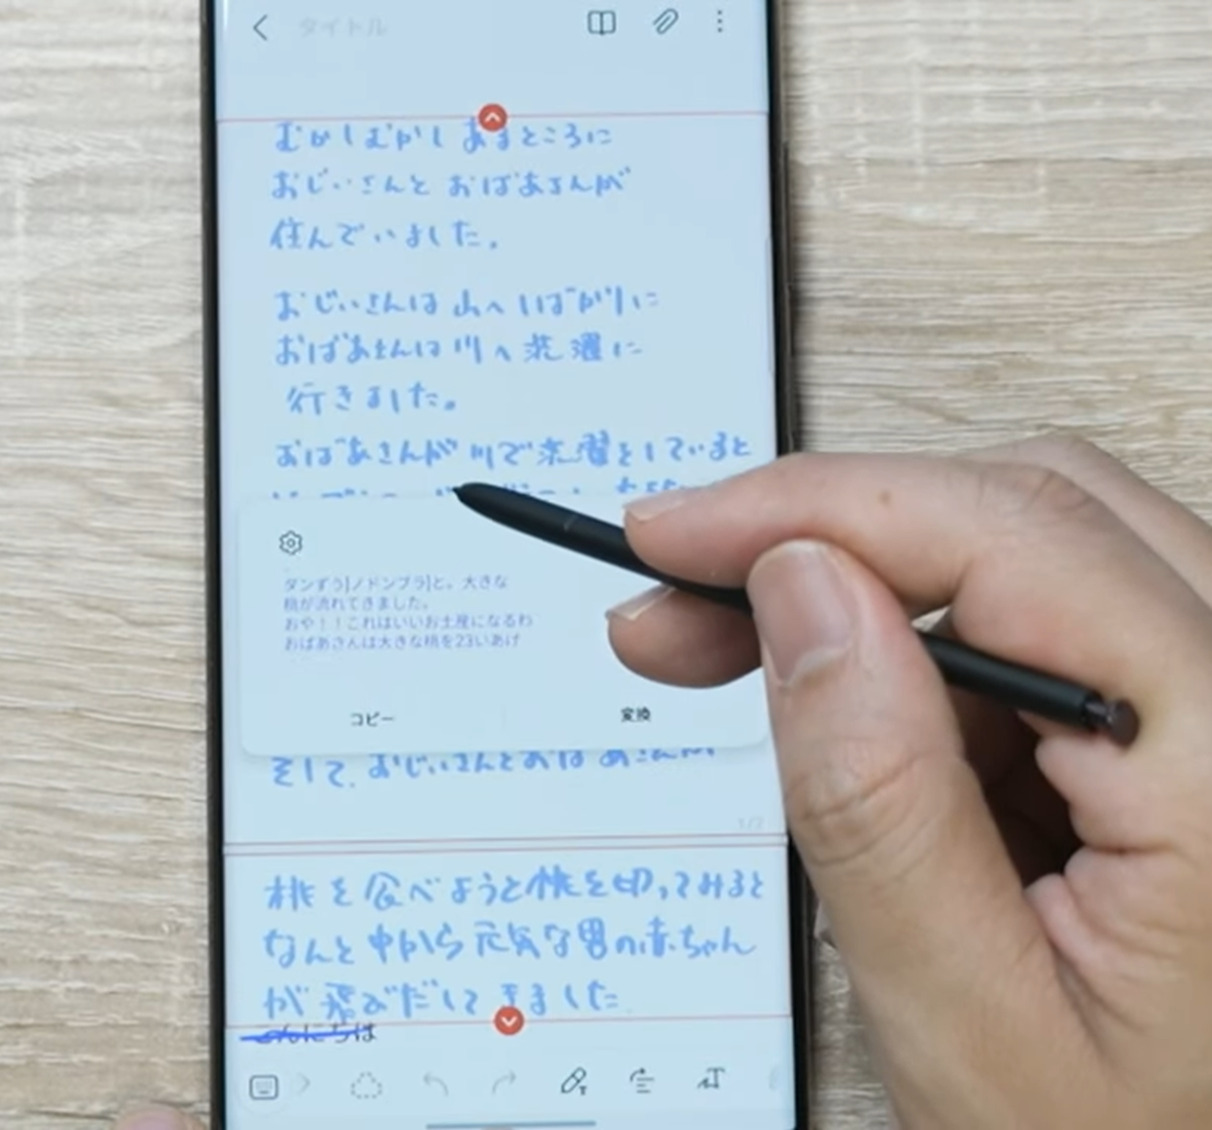 タイトル
むかしむかし あるところに
おじいさんと おばあさんが
住んでいました。
おじいさんは 山へ しばかりに
おばあさんは 川へ 洗濯に
行きました。
おばあさんが 川で洗濯をしていると
タンずう|ノドンブラ|と。大きな
桃が流れてきました。
おや!!これはいいお土産になるわ
おばあさんは大きな桃を23いあげ
コピー
変換
そして、おじいさんとおばあさんが
1/2
桃を食べようと桃を切ってみると
なんと中から元気な男の赤ちゃん
が飛びだしてきました